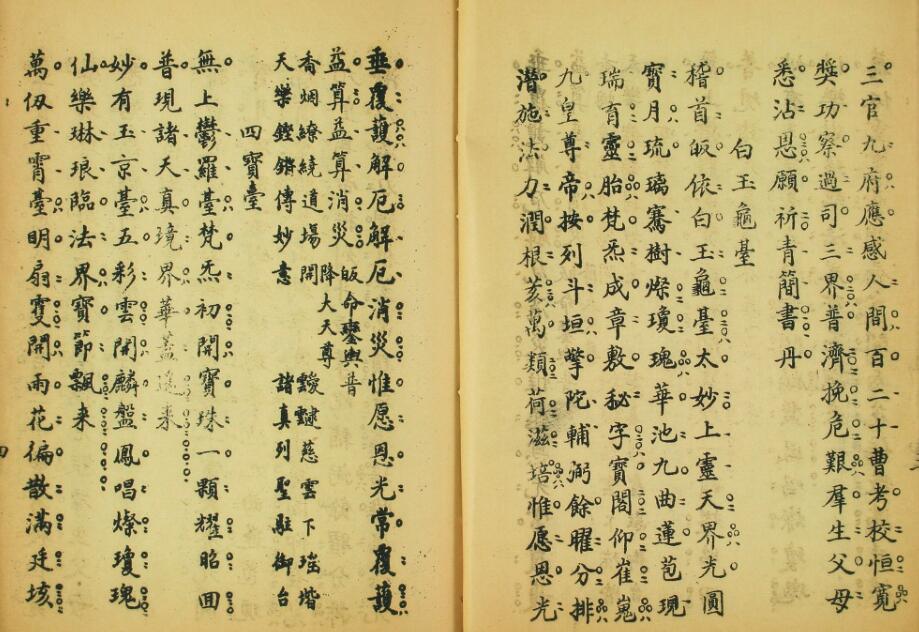 三官九府應感人間百二十曹考校恒寬
獎功察過司三界普濟挽危艱羣生父母
悉沾恩願祈青簡書丹
白玉龜臺
稽首皈依白玉龜臺太妙上靈天界光圓
寶月琉璃騫樹燦瓊瑰華池九曲蓮苞現
瑞育靈胎梵炁成章敷秘字寶閣仰崔嵬
九皇尊帝按列斗垣擎陀輔弼餘曜分排
潛施法力潤根荄萬類荷滋培惟愿恩光
垂覆護解厄解厄消災惟愿恩光常覆護
益算益算消災皈命鑾輿普
香烟繚繞道場開降大天尊靉靆慈雲下瑤堦
天樂鏗鏘傳妙意諸真列聖駐御台
四寶臺
無上鬱羅臺梵炁初開寶珠一顆耀昭回
普現諸天真境界華蓋遙来
妙有玉京臺五彩雲開麟盤鳳唱燦瓊瑰
仙樂琳琅臨法界寶節飄来
萬仭重霄臺明扇雙開雨花徧散滿廷垓